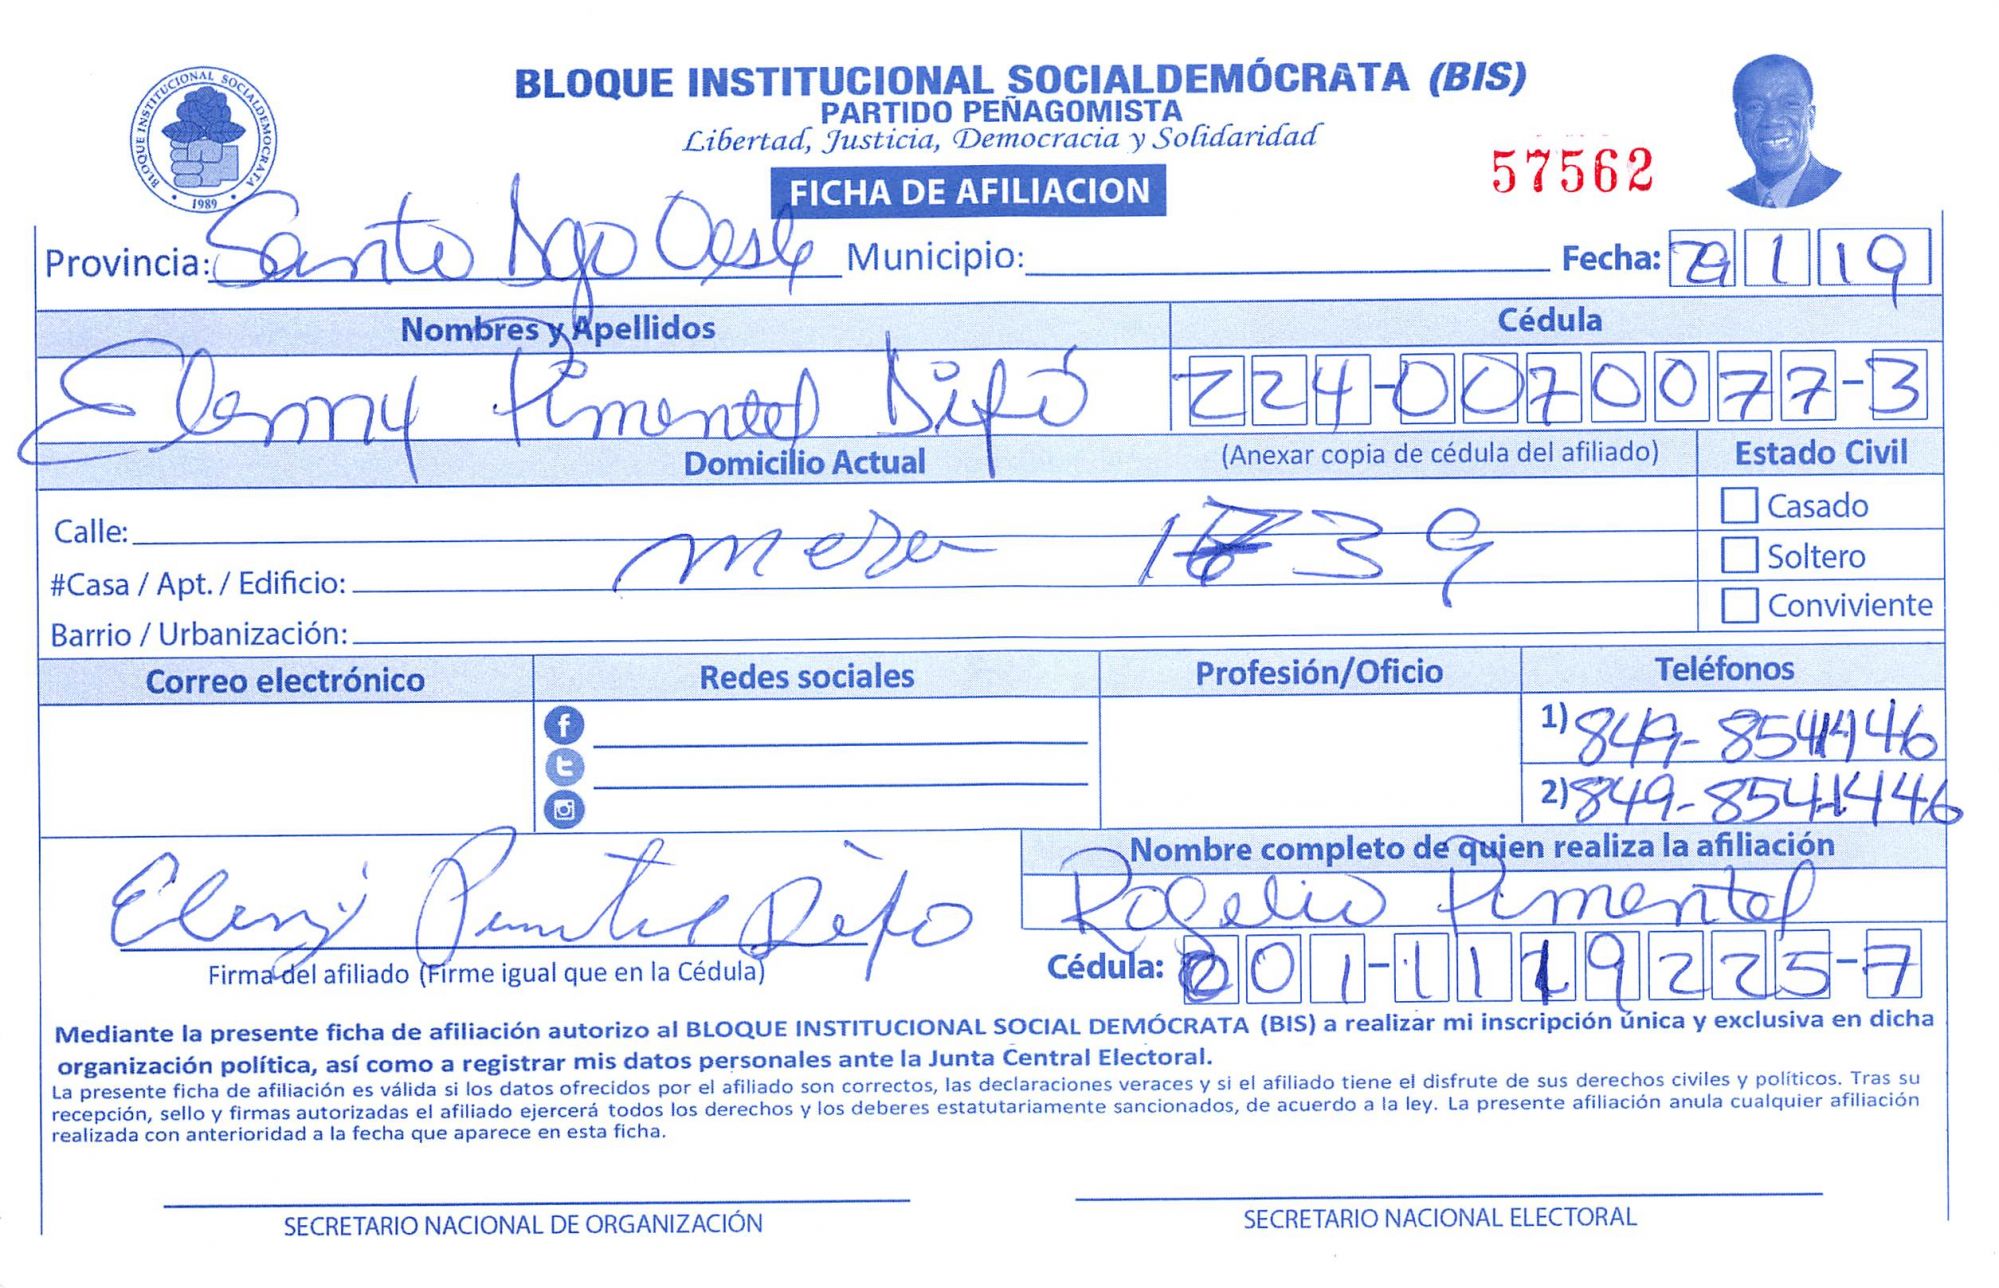 BLOQUE INSTITUCIONAL SOCIALDEMÓCRATA (BIS)
PARTIDO PEÑAGOMISTA
Libertad, Justicia, Democracia y Solidaridad
BLOQUE INSTITUCIONAL SOCIALDEMOCRATA
• 1989 •
57562
FICHA DE AFILIACION
Provincia: Santo Dgo Oeste Municipio: Fecha: 29 1 19
Nombres y Apellidos Cédula
Elenny Pimentel Difó 224-0070077-3
Domicilio Actual (Anexar copia de cédula del afiliado) Estado Civil
Casado
Calle: mesa 1 39
Soltero
#Casa / Apt. / Edificio:
Conviviente
Barrio / Urbanización:
Correo electrónico Redes sociales Profesión/Oficio Teléfonos
1) 849-8544146
2) 849-8541446
Nombre completo de quien realiza la afiliación
Eleny Pimentel Difo Rogelio Pimentel
Firma del afiliado (Firme igual que en la Cédula) Cédula: 001-1119225-7
Mediante la presente ficha de afiliación autorizo al BLOQUE INSTITUCIONAL SOCIAL DEMÓCRATA (BIS) a realizar mi inscripción única y exclusiva en dicha
organización política, así como a registrar mis datos personales ante la Junta Central Electoral.
La presente ficha de afiliación es válida si los datos ofrecidos por el afiliado son correctos, las declaraciones veraces y si el afiliado tiene el disfrute de sus derechos civiles y políticos. Tras su
recepción, sello y firmas autorizadas el afiliado ejercerá todos los derechos y los deberes estatutariamente sancionados, de acuerdo a la ley. La presente afiliación anula cualquier afiliación
realizada con anterioridad a la fecha que aparece en esta ficha.
SECRETARIO NACIONAL DE ORGANIZACIÓN SECRETARIO NACIONAL ELECTORAL